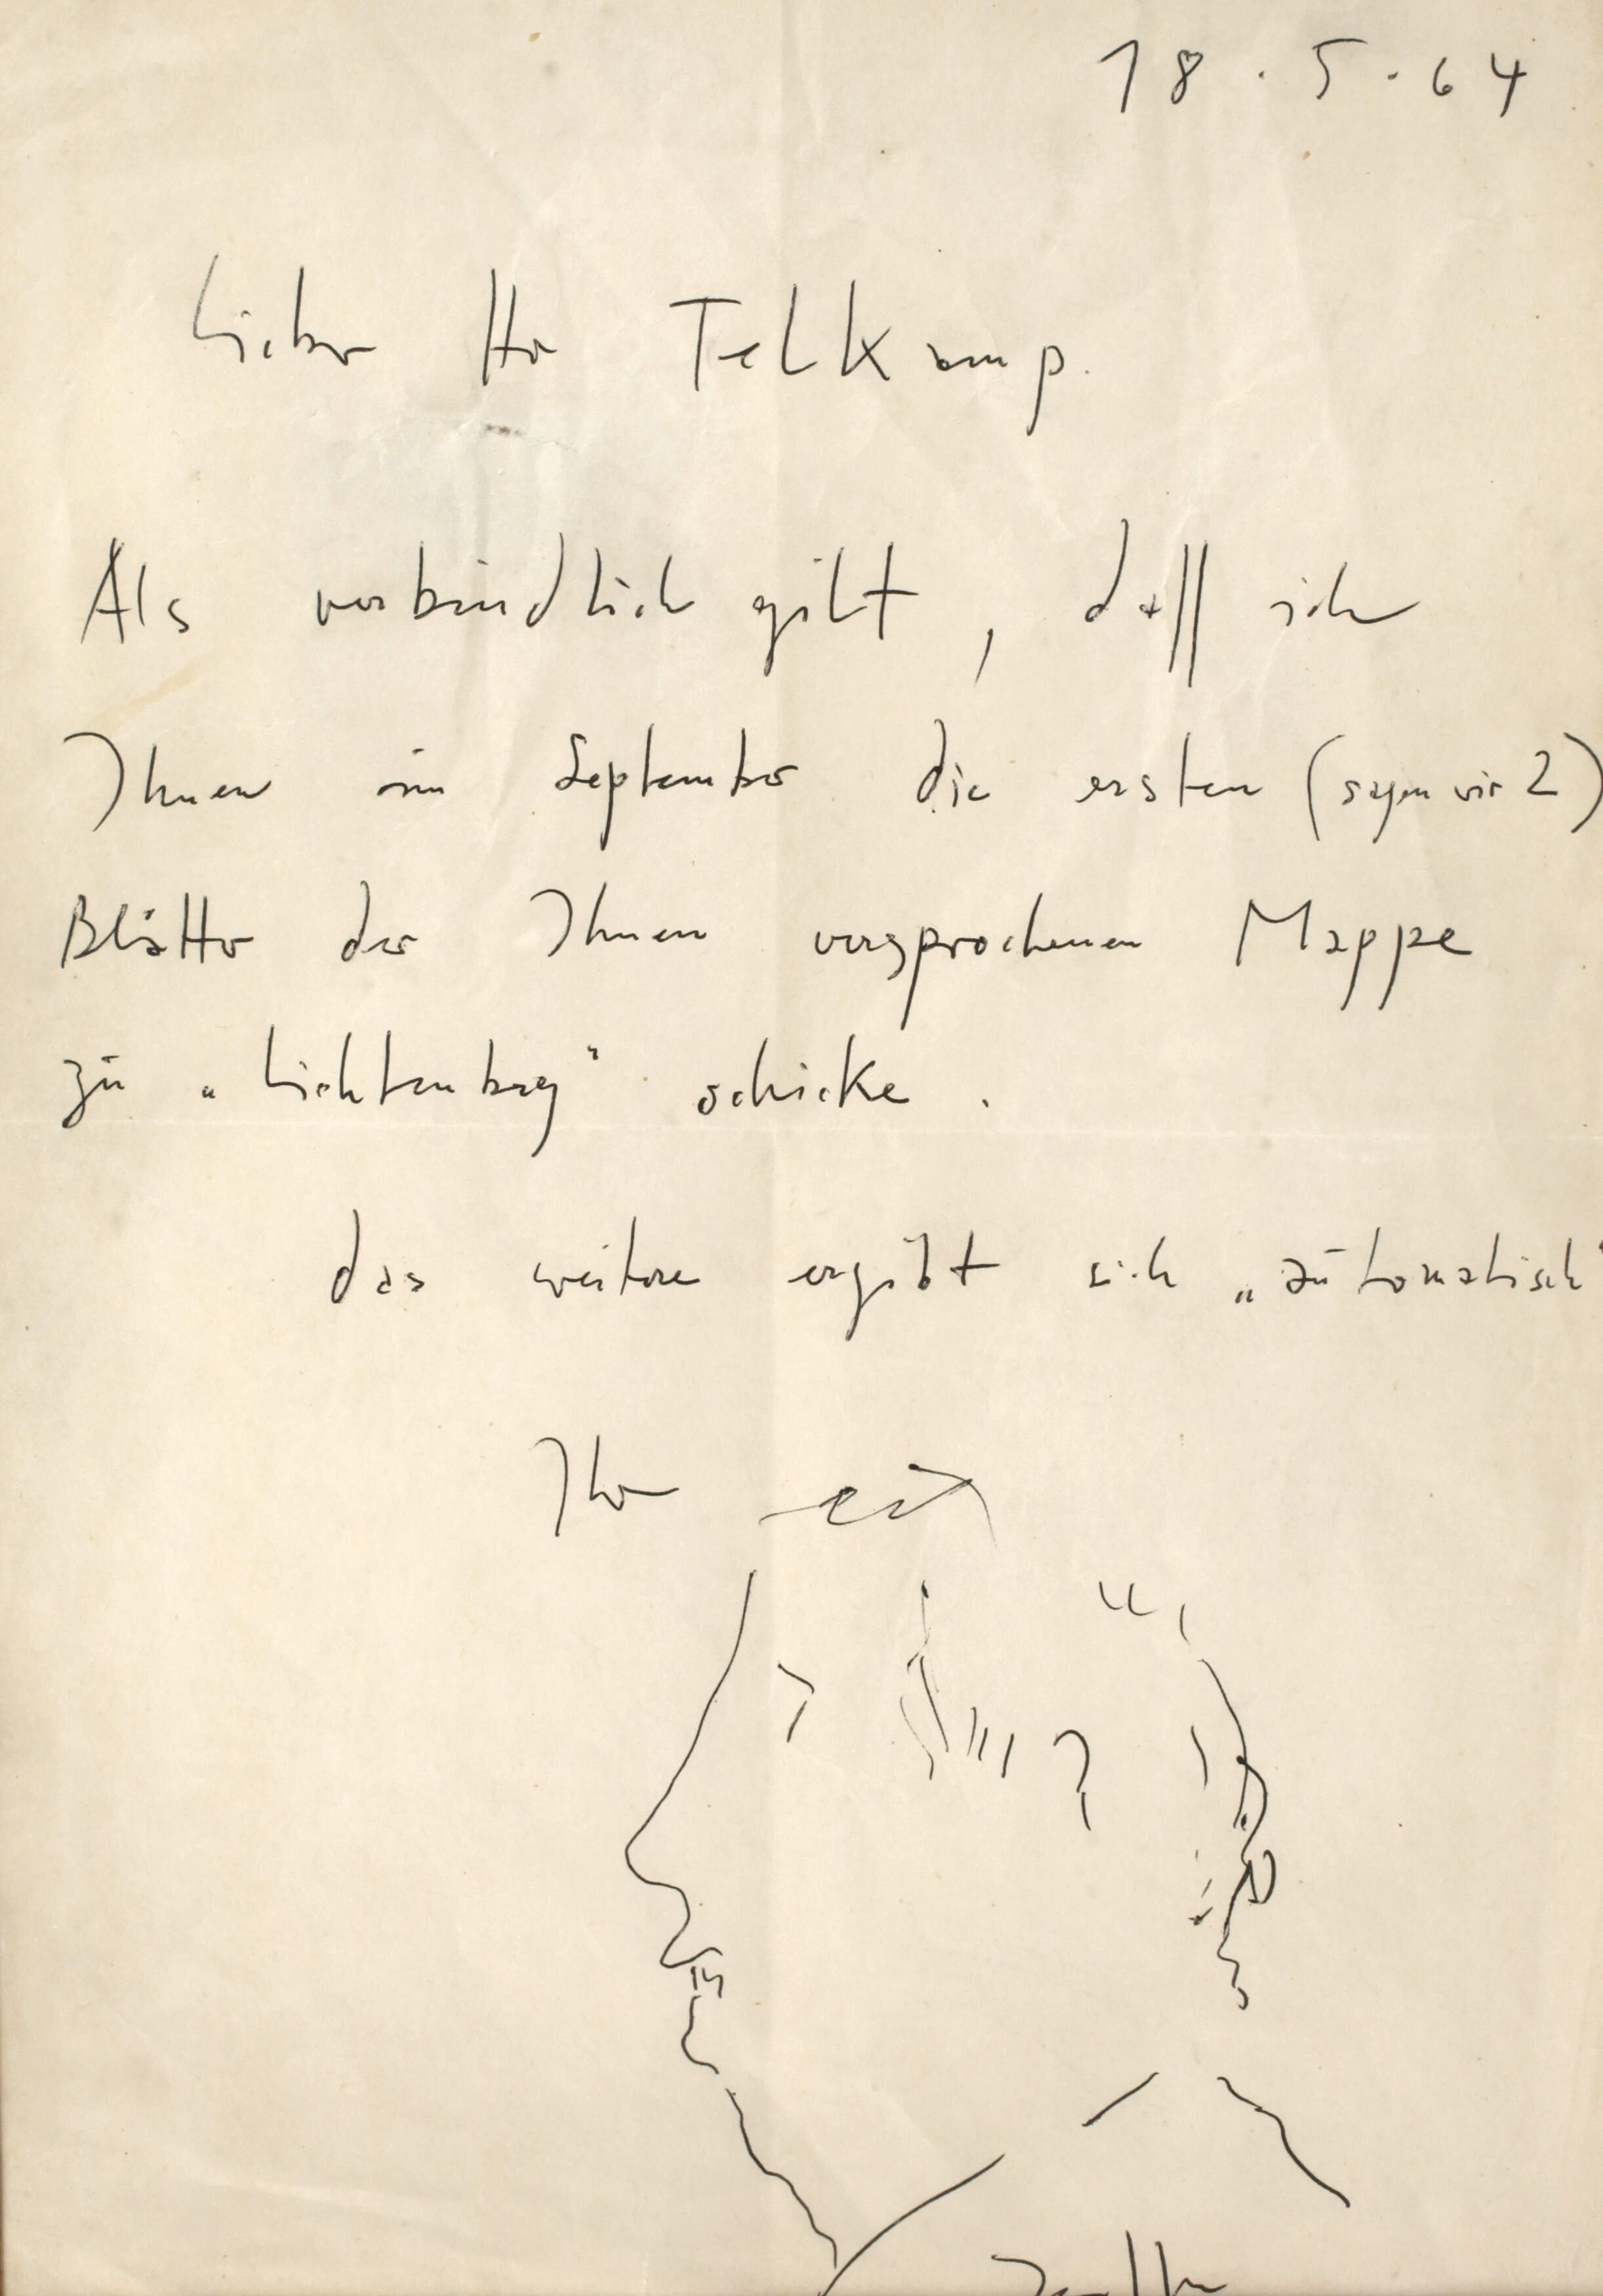 18.5.64
Lieber Hr Telkamp.
Als verbindlich gilt, daß ich
Ihnen im September die ersten (sagen wir 2)
Blätter der Ihnen versprochenen Mappe
zu „Lichtenberg“ schicke.
das weitere ergibt sich „automatisch“
Ihr